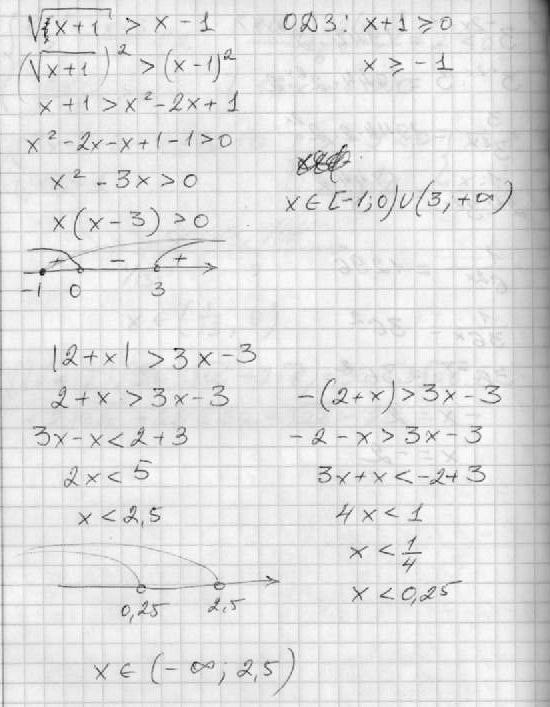 √x+1 > x-1
ОДЗ: x+1 ≥ 0
(√x+1)² > (x-1)²
x ≥ -1
x+1 > x²-2x+1
x²-2x-x+1-1>0
x²-3x>0
x∈[-1;0)∪(3,+∞)
x(x-3)>0
+ - +
-1 0 3
|2+x| > 3x-3
2+x > 3x-3
-(2+x) > 3x-3
3x-x < 2+3
-2-x > 3x-3
2x < 5
3x+x < -2+3
x < 2,5
4x < 1
x < 1/4
x < 0,25
0,25 2,5
x ∈ (-∞; 2,5)